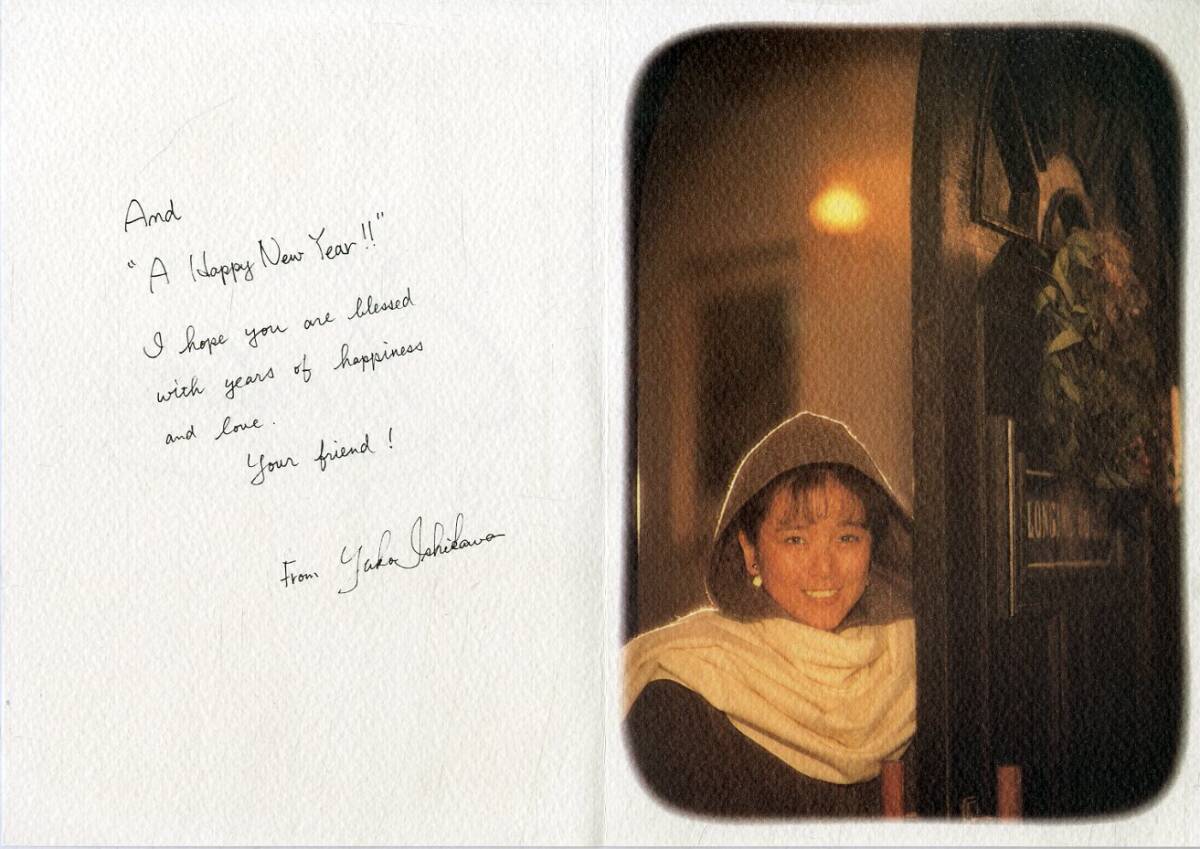 And
"A Happy New Year!!"
I hope you are blessed
with years of happiness
and love.
Your friend!
From Yuko Ishikawa